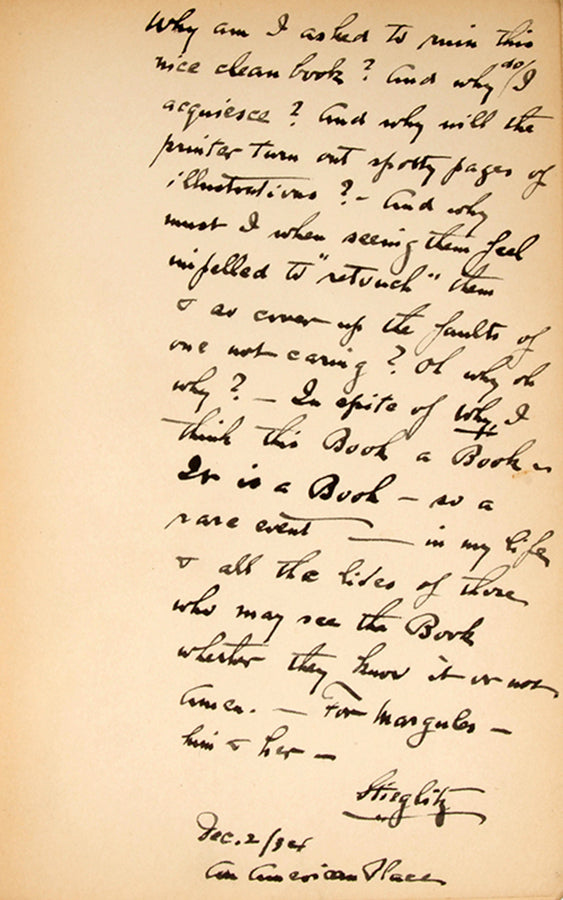 Why am I asked to ruin this
nice clean book? And why do I
acquiesce? And why will the
printer turn out spotty pages of
illustrations? - And why
must I when seeing them feel
impelled to "retouch" them
& so cover up the faults of
one not caring? Oh why oh
why? — In spite of why, I
think this Book a Book —
It is a Book — so a
rare event — in my life
& all the lives of those
who may see the Book
whether they know it or not.
Amen. — For Margules —
him & her —
Stieglitz
Dec. 2/34
An American Place